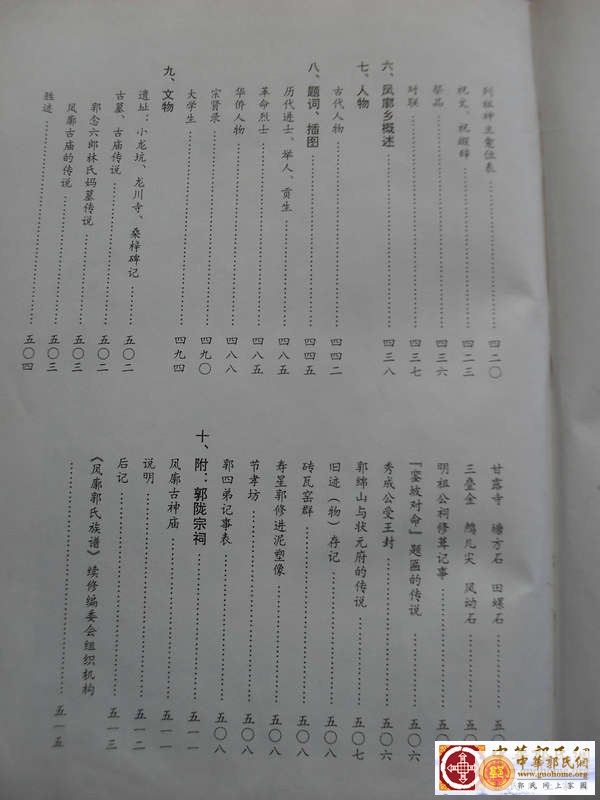 列祖神主龛位表……四二〇
祝文、祝嘏辞……四二三
祭品……四三六
对联……四三七
六、凤廓乡概述……四三八
七、人物
古代人物……四四二
八、题词、插图……四四五
历代进士、举人、贡生……四八五
革命烈士……四八五
华侨人物……四八八
宗贤录……四九〇
大学生……四九四
九、文物
遗址：小龙坑、龙川寺、桑梓碑记……五〇二
古墓、古庙传说……五〇二
郭念六郎林氏妈墓传说……五〇三
凤廓古庙的传说……五〇三
胜迹……五〇四
甘露寺 塘方石 田螺石……五〇
三叠金 尖 风动石……五〇
明祖公祠修葺记事……五〇
『窑坡对命』题匾的传说……五〇六
秀成公受王封……五〇六
郭绵山与状元府的传说……五〇七
旧迹（物）存记……五〇八
砖瓦窑群……五〇八
寿星郭修进泥塑像……五〇八
节孝坊……五〇八
郭四弟记事表……五〇八
十、附：郭陇宗祠……五一一
凤廓古神庙……五一一
说明……五一二
后记……五一三
《凤廓郭氏族谱》续修编委会组织机构
……五一五
中华郭氏網
www.guohome.org
郭氏网上家园